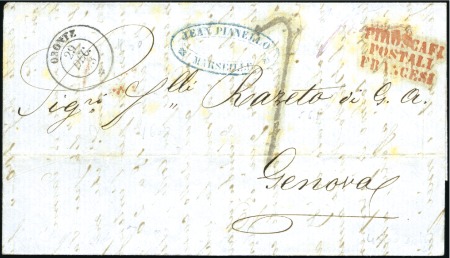 ORONTE
JEAN PIANELLO
MARSEILLE
PIROSCAFI
POSTALI
FRANCESI
Sigri Flli Razeto di G. A.
Genova